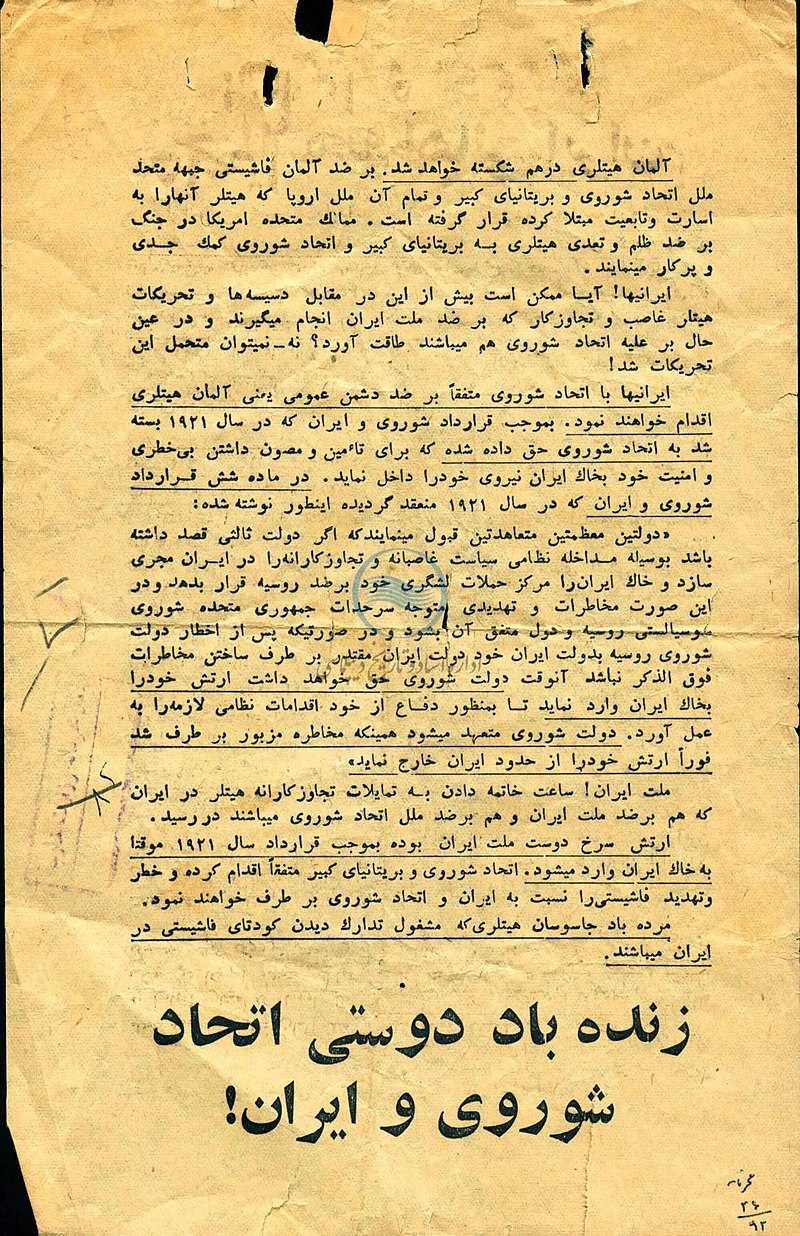 آلمان هیتلری درهم شکسته خواهد شد. بر ضد آلمان فاشیستی جبهه متحد
ملل اتحاد شوروی و بریتانیای کبیر و تمام آن ملل اروپا که هیتلر آنهارا به
اسارت وتابعیت مبتلا کرده قرار گرفته است. ممالك متحده امریکا در جنگ
بر ضد ظلم و تعدی هیتلری بـه بریتانیای کبیر و اتحاد شوروی کمك جـدی
و پرکار مینمایند.
ایرانیها! آیـا ممکن است بیش از این در مقابل دسیسه‌ها و تحریکات
هیتلر غاصب و تجاوزکار که بر ضد ملت ایران انجام میگیرند و در عین
حال بر علیه اتحاد شوروی هم میباشند طاقت آورد؟ نه ـ نمیتوان متحمل این
تحریکات شد!
ایرانیها با اتحاد شوروی متفقاً بر ضد دشمن عمومی یعنی آلمان هیتلری
اقدام خواهند نمود. بموجب قرارداد شوروی و ایران که در سال ۱۹۲۱ بسته
شد به اتحاد شوروی حق داده شده که برای تاٴمین و مصون داشتن بی‌خطری
و امنیت خود بخاك ایران نیروی خودرا داخل نماید. در ماده شش قـرارداد
شوروی و ایران که در سال ۱۹۲۱ منعقد گردیده اینطور نوشته شده:
«دولتین معظمتین متعاهدتین قبول مینمایندکه اگر دولت ثالثی قصد داشته
باشد بوسیله مـداخله نظامی سیاست غاصبانه و تجاوزکارانه‌را در ایـران مجری
سازد و خاك ایران‌را مرکز حملات لشگری خود برضد روسیه قرار بدهد ودر
این صورت مخاطرات و تهدیدی متوجه سرحدات جمهوری متحده شوروی
سوسیالستی روسیه و دول متفق آن بشود و در صورتیکه پس از اخطار دولت
شوروی روسیه بدولت ایران خود دولت ایران مقتدر بر طرف ساختن مخاطرات
فوق الذکر نباشد آنوقت دولت شوروی حق خواهد داشت ارتش خودرا
بخاك ایران وارد نماید تـا بمنظور دفـاع از خود اقدامات نظامی لازمه‌را به
عمل آورد. دولت شوروی متعهد میشود همینکه مخاطره مزبور بر طرف شد
فوراً ارتش خودرا از حدود ایران خارج نماید»
ملت ایران! ساعت خاتمه دادن بـه تمایلات تجاوزکارانه هیتلر در ایران
که هم برضد ملت ایران و هم برضد ملل اتحاد شوروی میباشند در رسید.
ارتش سرخ دوست ملت ایران بوده بموجب قرارداد سال ۱۹۲۱ موقتا
به خاك ایران وارد میشود. اتحاد شوروی و بریتانیای کبیر متفقاً اقدام کرده و خطر
وتهدید فاشیستی‌را نسبت به ایران و اتحاد شوروی بر طرف خواهند نمود.
مرده باد جاسوسان هیتلری‌که مشغول تدارك دیدن کودتای فاشیستی در
ایران میباشند.
زنده باد دوستی اتحاد
شوروی و ایران!
۹۲